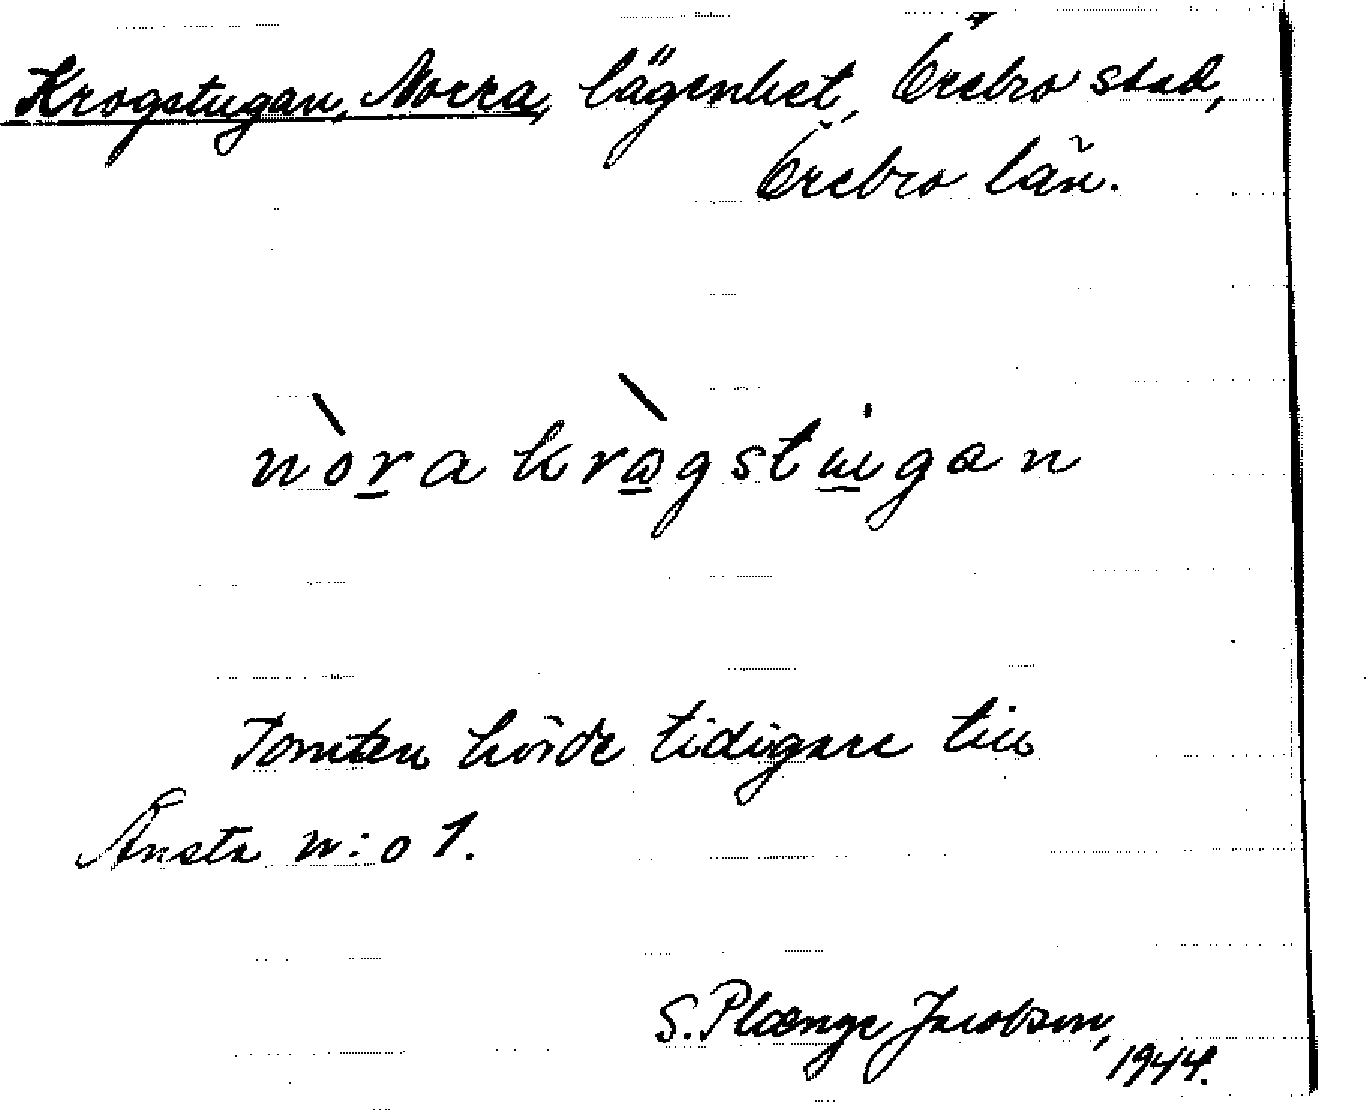 Krogstugan, Norra, lägenhet, Örebro stad,
Örebro län.
nòra kràgstugan
Tomten hörde tidigare till
Ånsta n:o 1.
S. Plænge Jacobson,
1944.